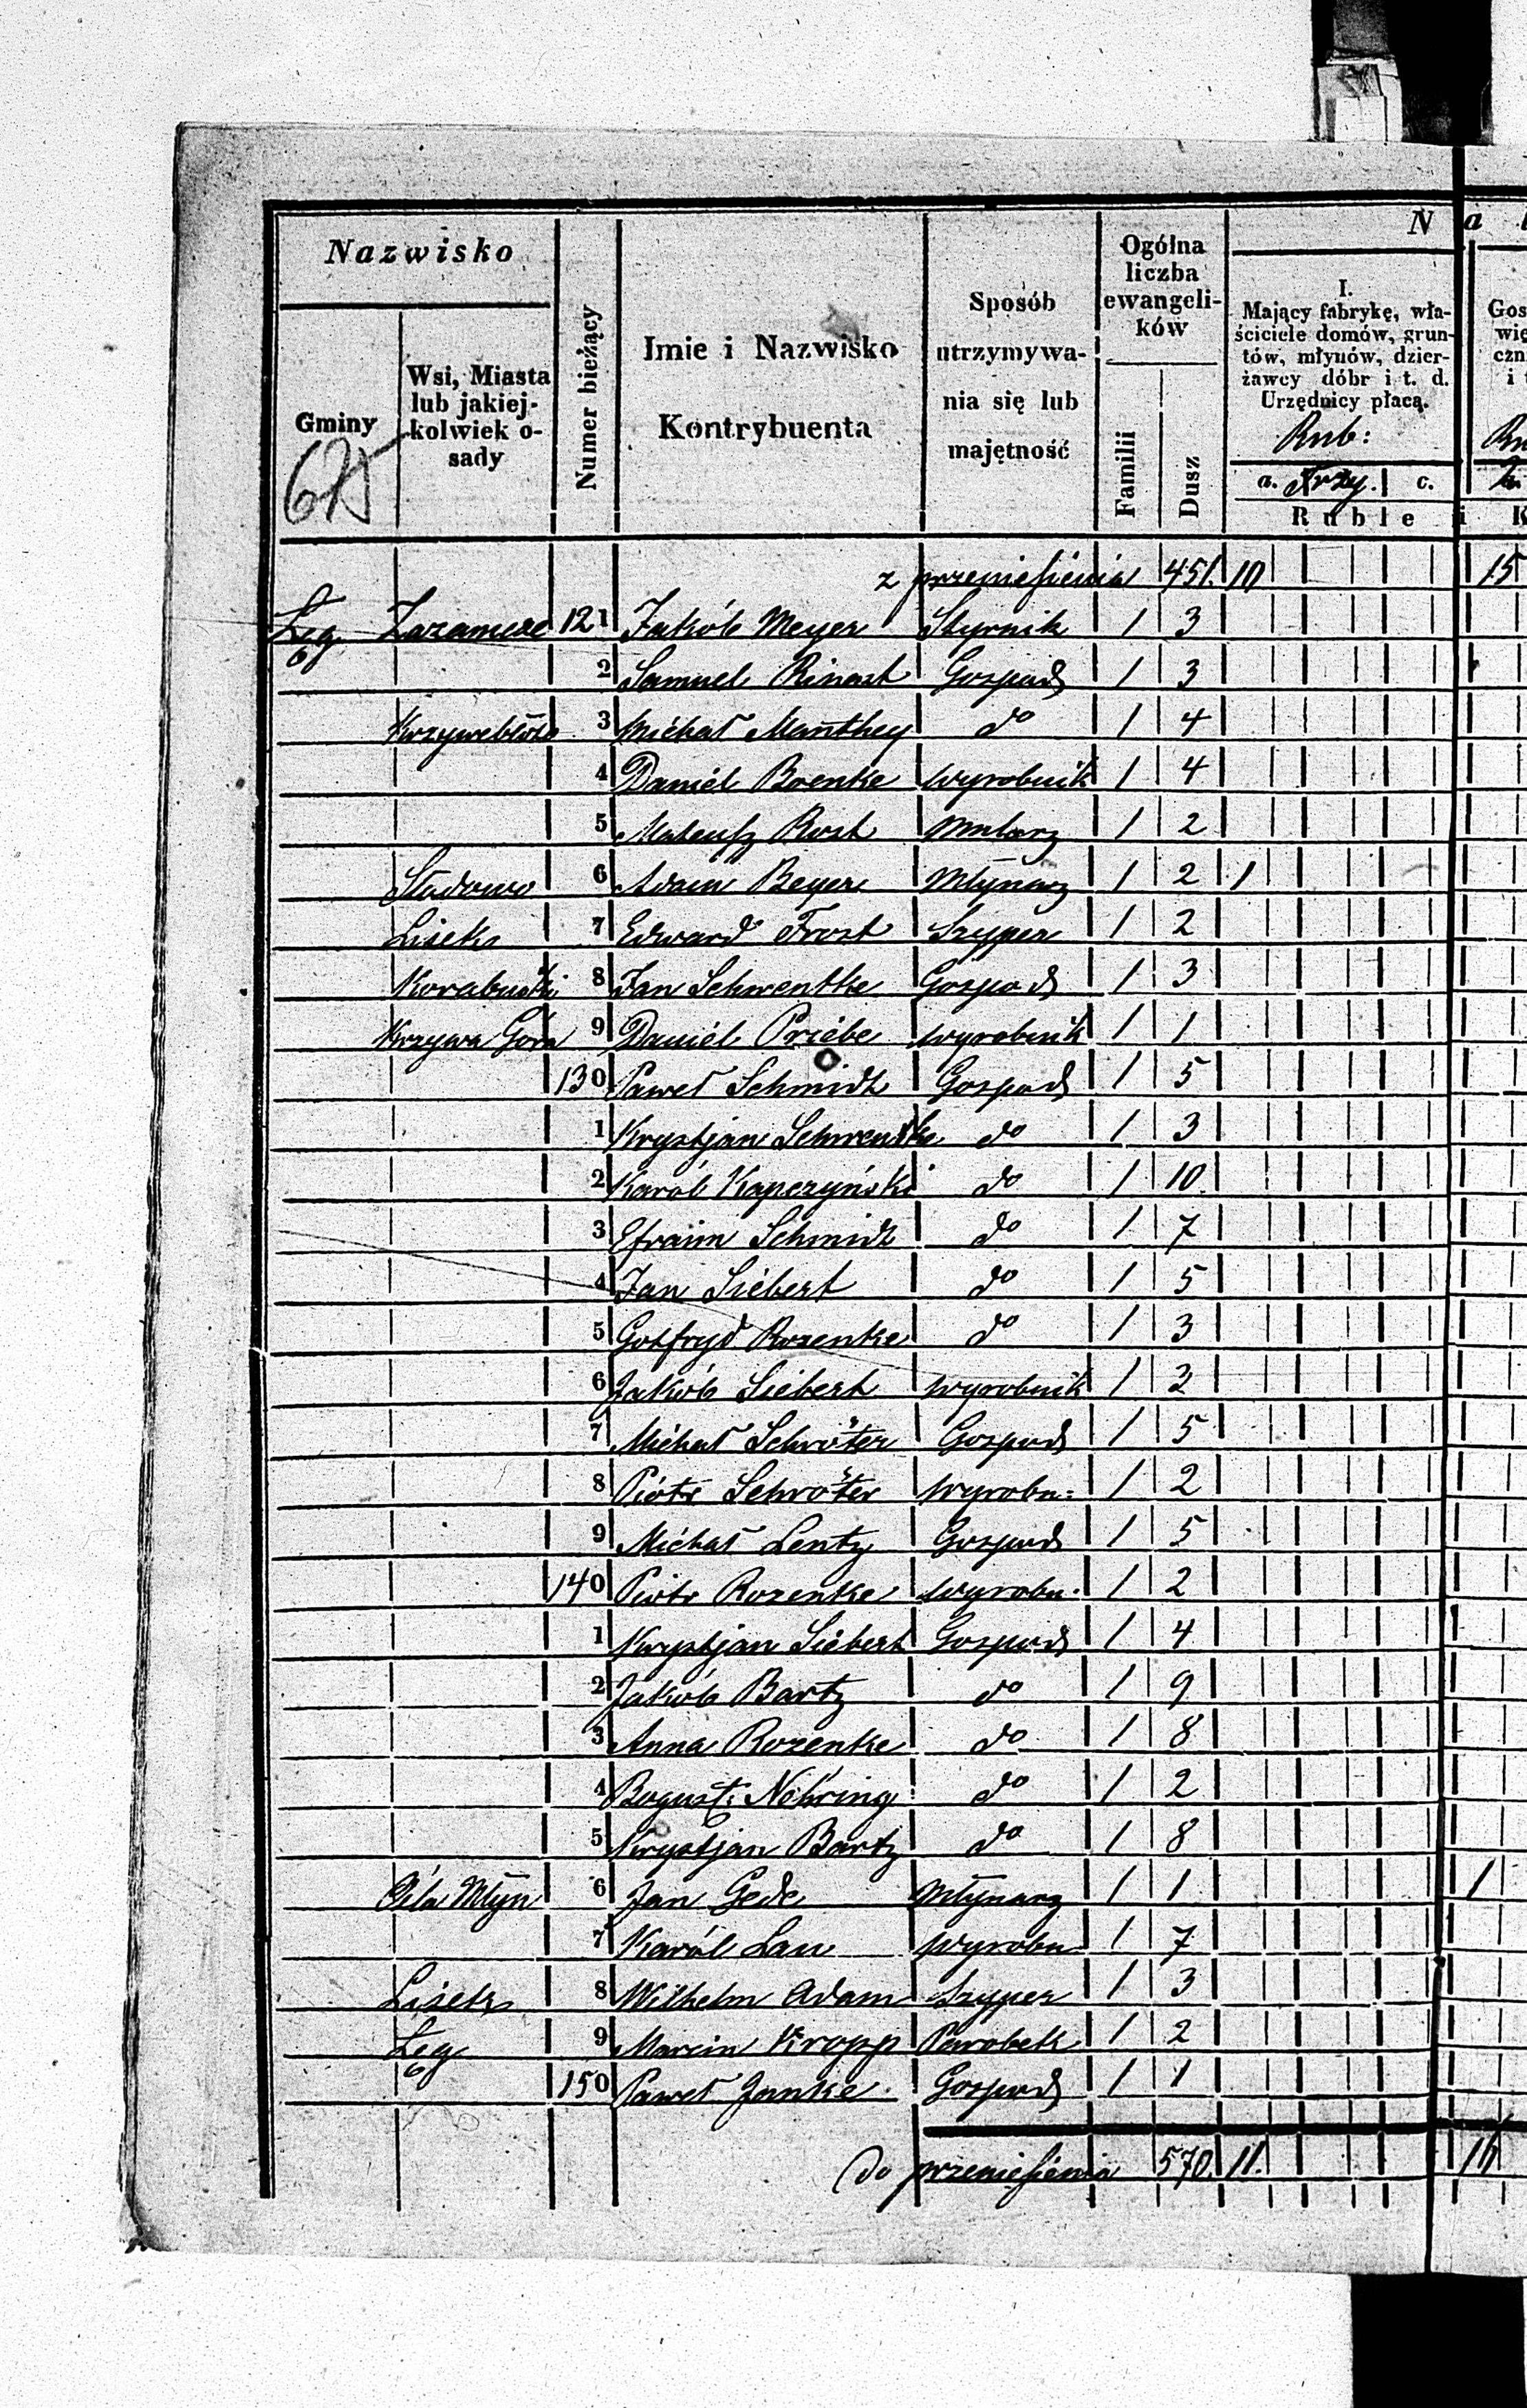 Nazwisko
Gminy
Wsi, Miasta
lub jakiej-
kolwiek o-
sady
Numer bieżący
Imie i Nazwisko
Kontrybuenta
Sposób
utrzymywa-
nia się lub
majętność
Ogólna
liczba
ewangeli-
ków
Familii
Dusz
N a
I.
Mający fabrykę, wła-
ściciele domów, grun-
tów, młynów, dzier-
żawcy dóbr i t. d.
Urzędnicy płacą.
Rub:
a. Trzy. c.
Ruble i K
z przeniesienia 451. 10 15
Łęg Zazamcze 121 Jakób Meyer Styrnik 1 3
2 Samuel Rinast Gospod 1 3
3 Michał Manthey do 1 4
4 Daniel Boenke wyrobnik 1 4
5 Mateusz Rost Mularz 1 2
Stodowo 6 Adam Beyer Młynarz 1 2 1
Lisek 7 Edward Frost Szyper 1 2
Korabniki 8 Jan Schwentke Gospod 1 3
Krzywa Góra 9 Daniel Priebe wyrobnik 1 1
130 Paweł Schmidt Gospod 1 5
1 Krystjan Schwentke do 1 3
2 Karól Kapczyński do 1 10
3 Efraim Schmidt do 1 7
4 Jan Siebert do 1 5
5 Gotfryd Rozentke do 1 3
6 Jakób Siebert wyrobnik 1 2
7 Michał Schröter Gospod 1 5
8 Piotr Schröter wyrobn: 1 2
9 Michał Lentz Gospod 1 5
140 Piotr Rozentke wyrobn. 1 2
1 Krystjan Siebert Gospod 1 4
2 Jakób Bartz do 1 9
3 Anna Rozentke do 1 8
4 Bogusł: Nöhring do 1 2
5 Krystjan Bartz do 1 8
Piła Młyn 6 Jan Gede Młynarz 1 1 1
7 Karól Lau wyrobn 1 7
Lisek 8 Wilhelm Adam Szyper 1 3
Łęg 9 Marcin Kropp Parobek 1 2
150 Paweł Janke Gospod 1 1
Do przeniesienia 570. 11. 16